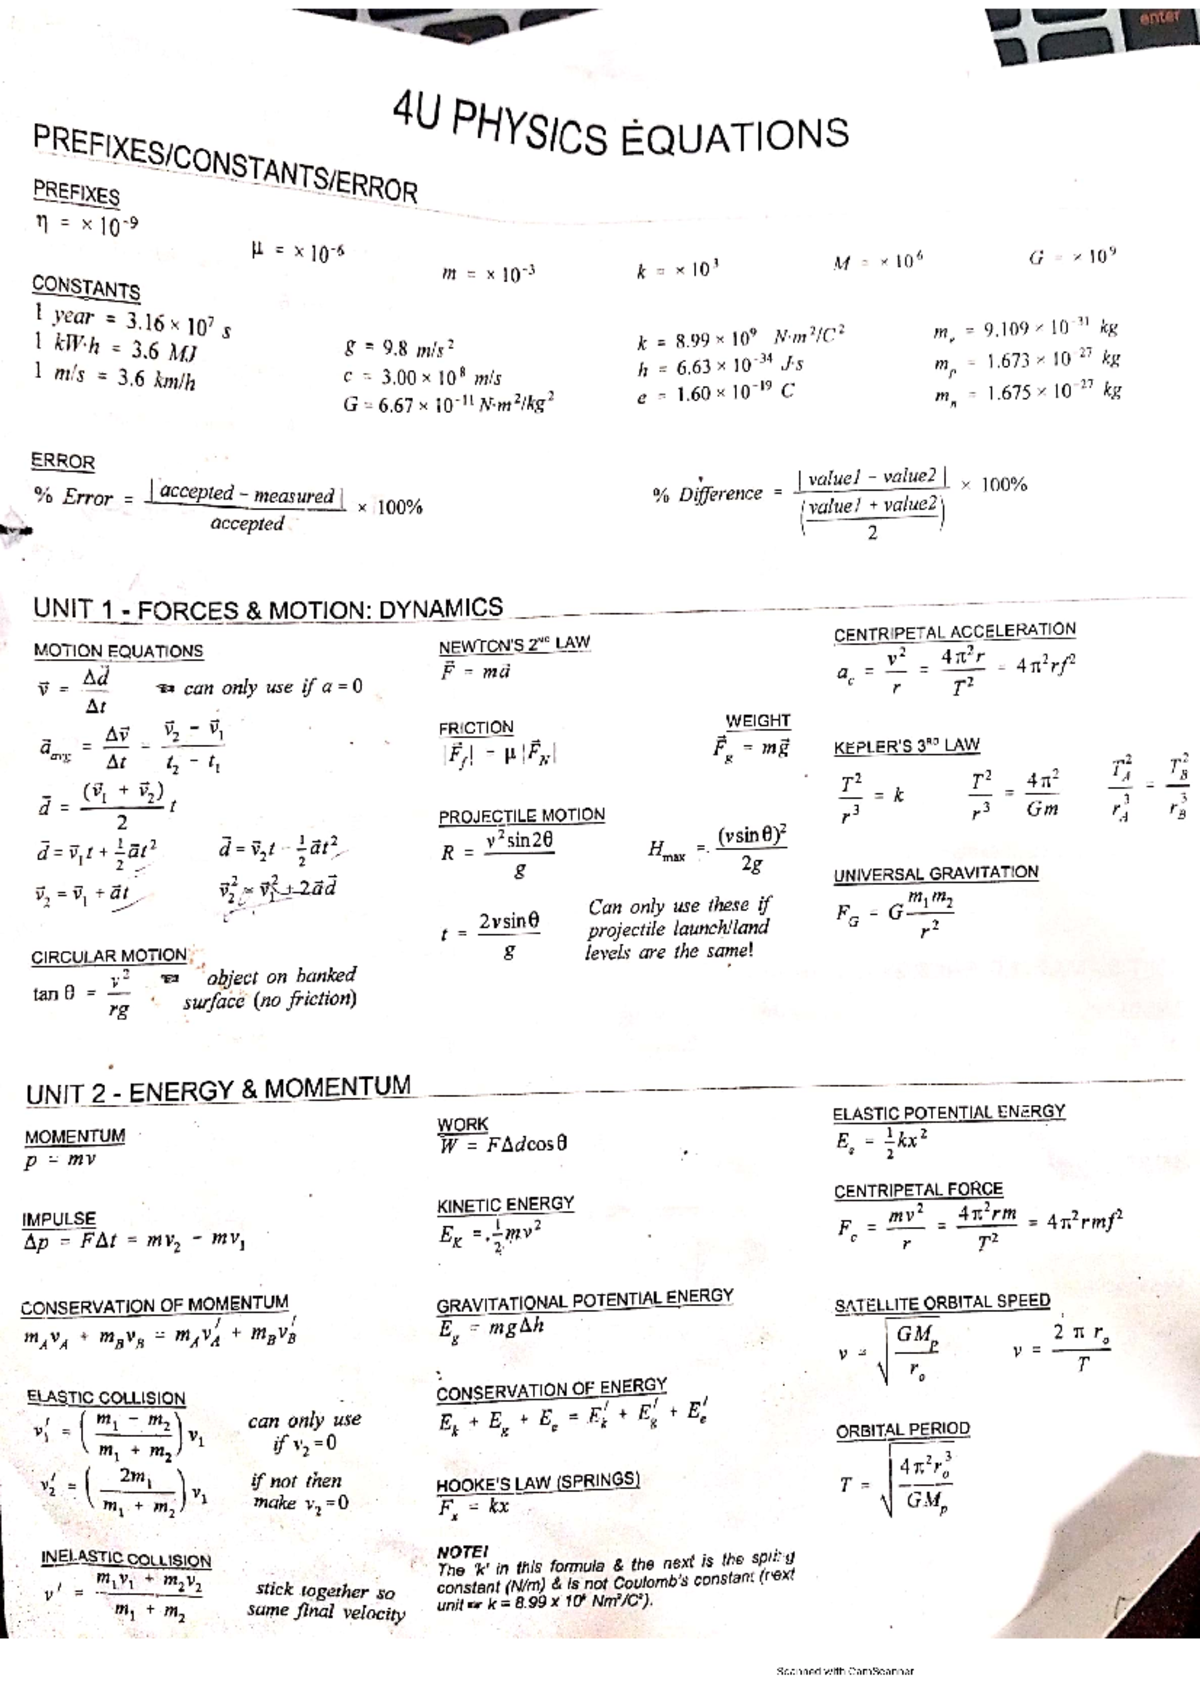 enter
4U PHYSICS EQUATIONS
PREFIXES/CONSTANTS/ERROR
PREFIXES
η = × 10⁻⁹
μ = × 10⁻⁶
m = × 10⁻³
k = × 10³
M = × 10⁶
G = × 10⁹
CONSTANTS
1 year = 3.16 × 10⁷ s
1 kW·h = 3.6 MJ
1 m/s = 3.6 km/h
g = 9.8 m/s²
c = 3.00 × 10⁸ m/s
G = 6.67 × 10⁻¹¹ N·m²/kg²
k = 8.99 × 10⁹ N·m²/C²
h = 6.63 × 10⁻³⁴ J·s
e = 1.60 × 10⁻¹⁹ C
mₑ = 9.109 × 10⁻³¹ kg
mₚ = 1.673 × 10⁻²⁷ kg
mₙ = 1.675 × 10⁻²⁷ kg
ERROR
% Error = | accepted − measured | / accepted × 100%
% Difference = | value1 − value2 | / ((value1 + value2) / 2) × 100%
UNIT 1 - FORCES & MOTION: DYNAMICS
MOTION EQUATIONS
v⃗ = Δd⃗ / Δt ☜ can only use if a = 0
a⃗_avg = Δv⃗ / Δt = (v⃗₂ − v⃗₁) / (t₂ − t₁)
d⃗ = (v⃗₁ + v⃗₂) / 2 t
d⃗ = v⃗₁t + ½a⃗t²
d⃗ = v⃗₂t − ½a⃗t²
v⃗₂ = v⃗₁ + a⃗t
v⃗₂² = v⃗₁² + 2a⃗d⃗
CIRCULAR MOTION
tan θ = v² / rg ☜ object on banked
surface (no friction)
NEWTON'S 2ᴺᴰ LAW
F⃗ = ma⃗
FRICTION
|F⃗_f| = μ |F⃗_N|
WEIGHT
F⃗_g = mg⃗
PROJECTILE MOTION
R = v² sin2θ / g
H_max = (v sin θ)² / 2g
t = 2v sinθ / g
Can only use these if
projectile launch/land
levels are the same!
CENTRIPETAL ACCELERATION
a_c = v² / r = 4π²r / T² = 4π²rf²
KEPLER'S 3ᴿᴰ LAW
T² / r³ = k
T² / r³ = 4π² / Gm
T_A² / r_A³ = T_B² / r_B³
UNIVERSAL GRAVITATION
F_G = G m₁m₂ / r²
UNIT 2 - ENERGY & MOMENTUM
MOMENTUM
p = mv
IMPULSE
Δp = FΔt = mv₂ − mv₁
CONSERVATION OF MOMENTUM
m_A v_A + m_B v_B = m_A v_A′ + m_B v_B′
ELASTIC COLLISION
v₁′ = ((m₁ − m₂) / (m₁ + m₂)) v₁
can only use
if v₂ = 0
v₂′ = (2m₁ / (m₁ + m₂)) v₁
if not then
make v₂ = 0
INELASTIC COLLISION
v′ = (m₁v₁ + m₂v₂) / (m₁ + m₂)
stick together so
same final velocity
WORK
W = FΔdcosθ
KINETIC ENERGY
E_K = ½mv²
GRAVITATIONAL POTENTIAL ENERGY
E_g = mgΔh
CONSERVATION OF ENERGY
E_k + E_g + E_e = E_k′ + E_g′ + E_e′
HOOKE'S LAW (SPRINGS)
F_x = kx
NOTE!
The 'k' in this formula & the next is the spring
constant (N/m) & is not Coulomb's constant (next
unit ☞ k = 8.99 x 10⁹ Nm²/C²).
ELASTIC POTENTIAL ENERGY
E_e = ½kx²
CENTRIPETAL FORCE
F_c = mv² / r = 4π²rm / T² = 4π²rmf²
SATELLITE ORBITAL SPEED
v = √(GM_p / r_o)
v = 2 π r_o / T
ORBITAL PERIOD
T = √(4π²r_o³ / GM_p)
Scanned with CamScanner